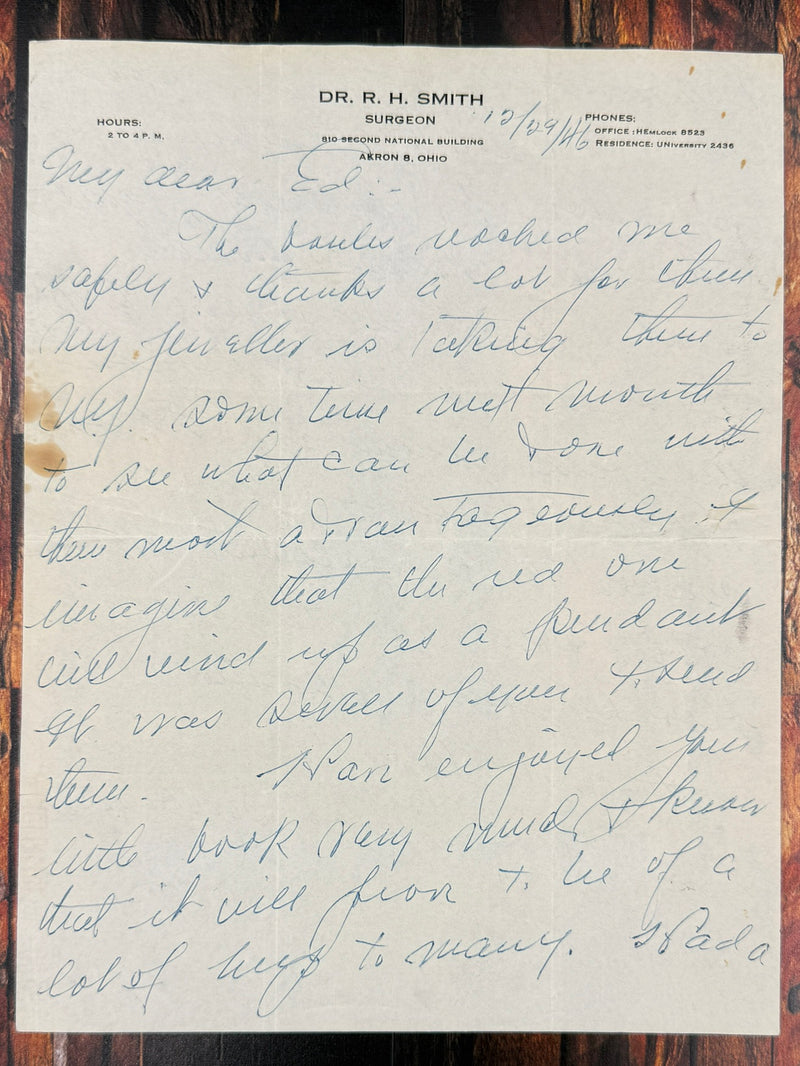 DR. R. H. SMITH
SURGEON
810 SECOND NATIONAL BUILDING
AKRON 8, OHIO
HOURS:
2 TO 4 P. M.
PHONES:
OFFICE: HEMLOCK 8523
RESIDENCE: UNIVERSITY 2436
12/29/46
My dear Ed:-
The reached me
safely & thanks a lot for them
My jeweller is taking them to
N.Y. some time next month
to see what can be done with
them most advantageously. I
imagine that the red one
will wind up as a pendant
It was swell of you to send
them. Have enjoyed your
little book very much, & know
that it will prove to be of a
lot of help to many. Had a